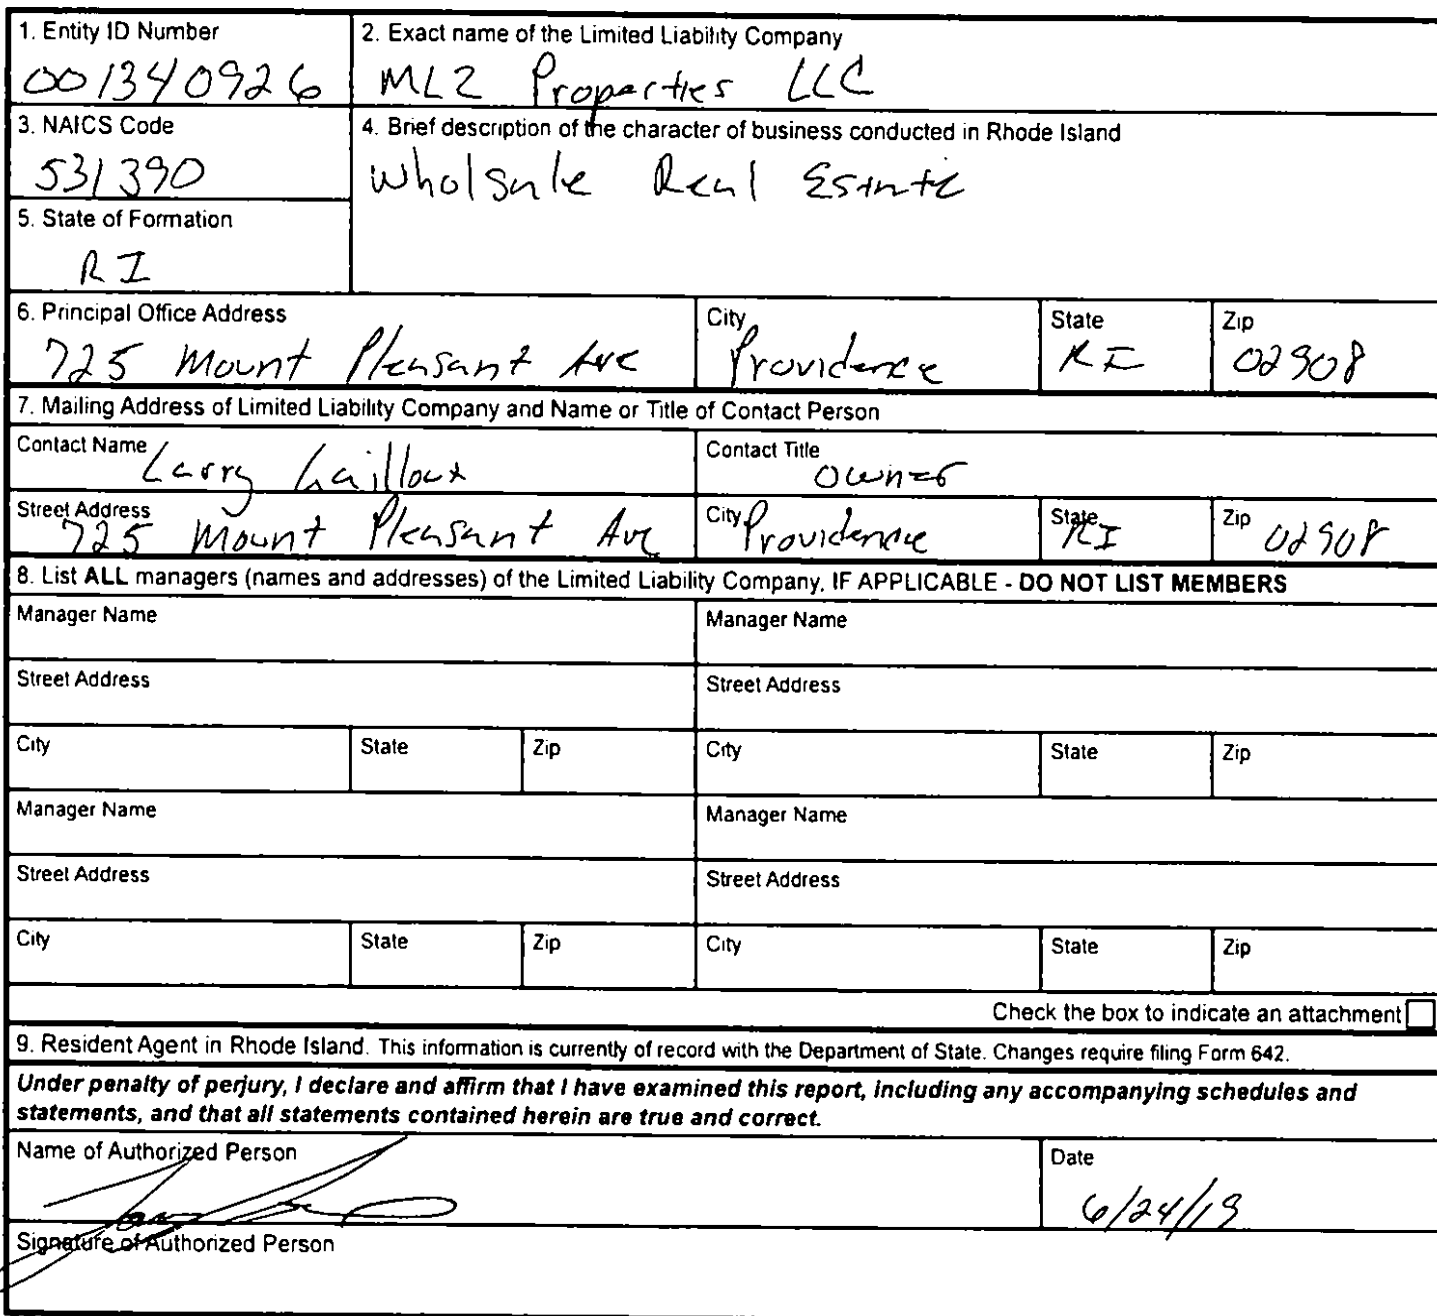 1. Entity ID Number
001340926
2. Exact name of the Limited Liability Company
ML2 Properties LLC
3. NAICS Code
531390
4. Brief description of the character of business conducted in Rhode Island
Wholsale Real Estate
5. State of Formation
RI
6. Principal Office Address
725 Mount Pleasant Ave
City
Providence
State
RI
Zip
02908
7. Mailing Address of Limited Liability Company and Name or Title of Contact Person
Contact Name
Larry Cailloux
Contact Title
Owner
Street Address
725 Mount Pleasant Ave
City
Providence
State
RI
Zip
02908
8. List ALL managers (names and addresses) of the Limited Liability Company, IF APPLICABLE - DO NOT LIST MEMBERS
Manager Name
Manager Name
Street Address
Street Address
City State Zip City State Zip
Manager Name
Manager Name
Street Address
Street Address
City State Zip City State Zip
Check the box to indicate an attachment
9. Resident Agent in Rhode Island. This information is currently of record with the Department of State. Changes require filing Form 642.
Under penalty of perjury, I declare and affirm that I have examined this report, including any accompanying schedules and
statements, and that all statements contained herein are true and correct.
Name of Authorized Person
Date
6/24/19
Signature of Authorized Person